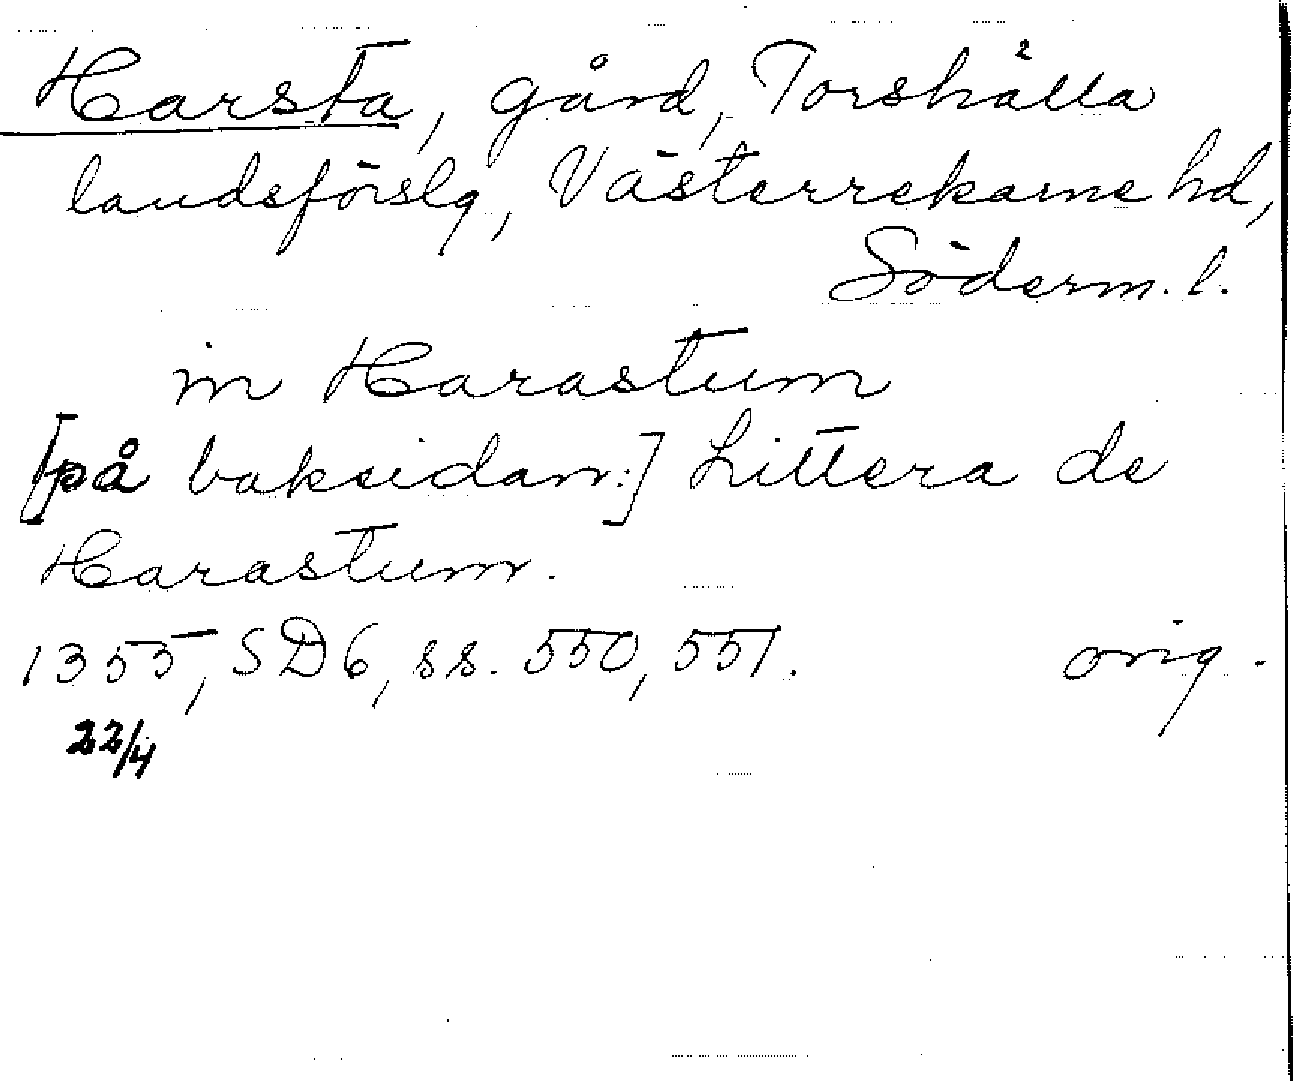 Harsta, gård, Torshälla
landsförslg, Västerrekarne hd,
Söderm. l.
in Harastum
[på baksidan:] Littera de
Harastum.
1355, SD6, ss. 550, 551. orig.
22/4